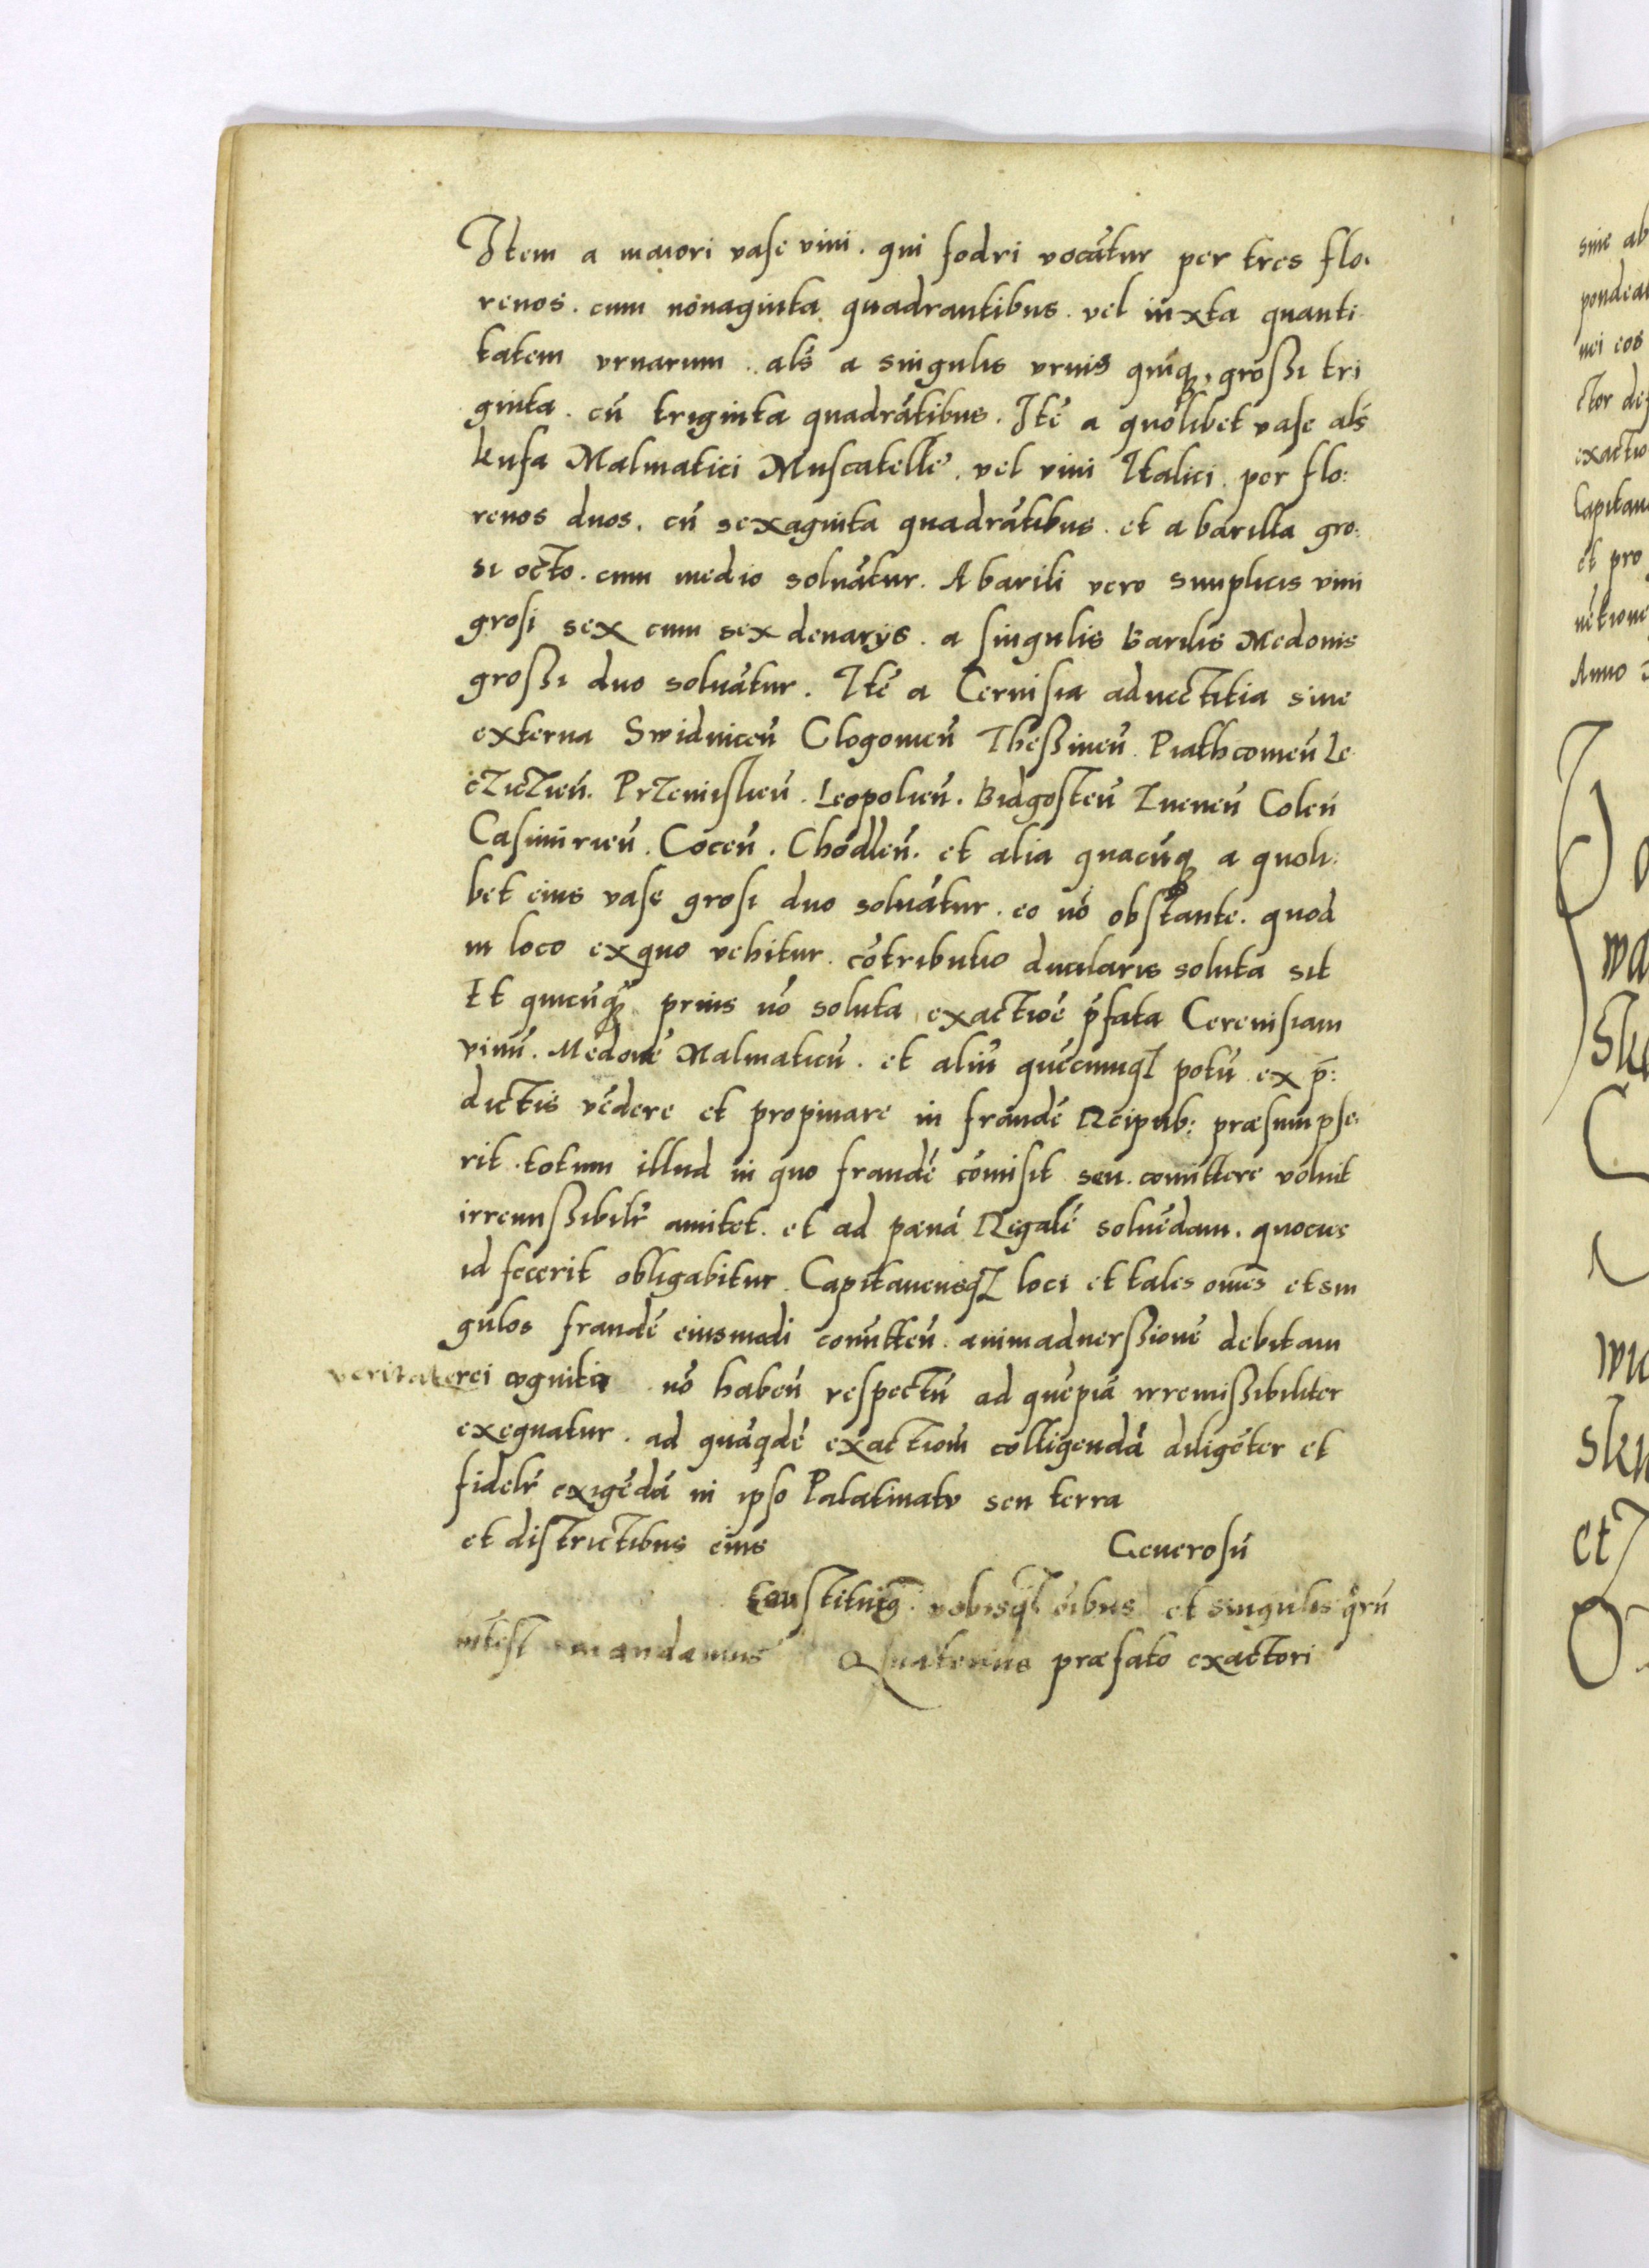 Item a maiori vase vini. qui fodri vocātur per tres flo:
renos. cum nōnaginta quadrantibus. vel iuxta quanti
tatem vrnarum. als a singulis vrnis quiq3, grossi tri
ginta. cū triginta quadrātibus. Itē a quolibet vase als
kufa Malmatici Muscatelle. vel vini Italici. per flo:
renos duos. cū sexaginta quadrātibus. et a barilla gro:
si octo. cum medio soluātur. A barili vero simplicis vini
grosi sex cum sex denarys. a singulis Barilis Medonis
grossi duo soluātur. Itē a Ceruisia aduectitia siue
externa Swidniceñ Glogouieñ Thessineñ Piathcomeñ Le
czicieñ. Przemislieñ. Leopolieñ. Bidgosteñ Zneneñ Coleñ
Casimirieñ. Coceñ. Chodleñ. et alia quacūq3 a quoli:
bet eius vase grosi duo soluātur. eo nō obstante. quod
in loco ex quo vehitur. cōtributio ducilaris soluta sit
Et quicūq3 prius nō soluta exactioē p̄fata Cereuisiam
vinū. Medonē Malmaticū. et aliū quēcumq3 potū ex p̄:
dictis vēdere et propinare in fraudē Reipub: præsumpse:
rit. totum illud in quo fraudē cōmisit seu comittere voluit
irremissibilr̄ amitet. et ad pœnā Regalē soluēdam. quocies
id fecerit obligabitur. Capitaneusq3 loci et tales om̄es et sin
gulos fraudē eiusmodi comitteñ. animaduerssionē debitam
veritate rei cognita nō habeñ respectū ad quēpiā irremissibiliter
exequatur. ad quāqdē exactionē colligendā diligēter et
fidelr̄ exigēdā in ipso Palatinatu seu terra
et districtibus eius Generosū
constituim9. vobisq3 oībus et singulis qrū
intest mandamus Quatenus præfato exactori
sine ab
pondea
nei eos
ctor de
exactio
Capitan
et pro
Anno
wa
Sk
et